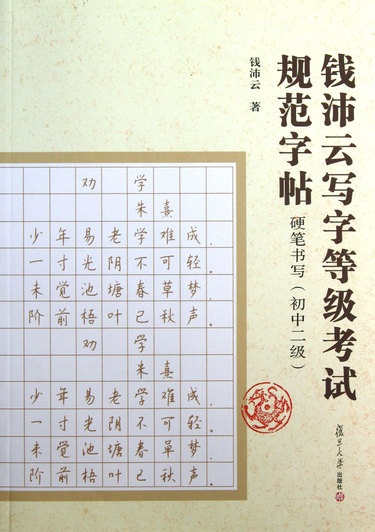 钱沛云写字等级考试
规范字帖
硬笔书写（初中二级）
钱沛云 著
劝 学
朱熹
少年易老学难成，
一寸光阴不可轻。
未觉池塘春草梦，
阶前梧叶已秋声。
劝 学
朱熹
少年易老学难成，
一寸光阴不可轻。
未觉池塘春草梦，
阶前梧叶已秋声。
復旦大學出版社